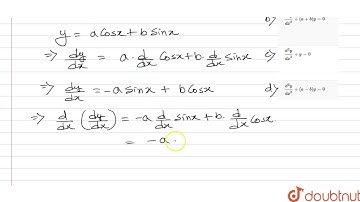 y = a cosx + b sinx
⇒ dy/dx = a · d/dx cosx + b · d/dx sinx
⇒ dy/dx = -a sinx + b cosx
⇒ d/dx (dy/dx) = -a d/dx sinx + b · d/dx cosx
= -a ·
b)
c) d²y/dx² + y = 0
d) d²y/dx² + (a − b)y = 0
doubtnut